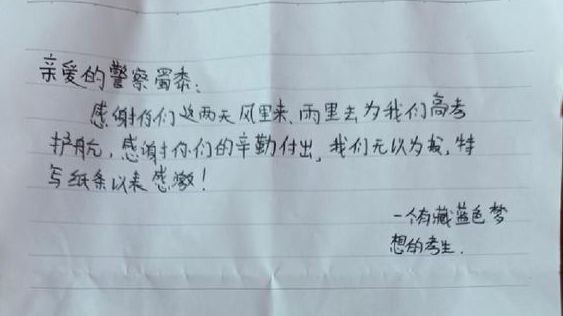 亲爱的警察蜀黍：
感谢你们这两天风里来、雨里去为我们高考
护航，感谢你们的辛勤付出，我们无以为报，特
写纸条以表感激！
一个有藏蓝色梦
想的考生.